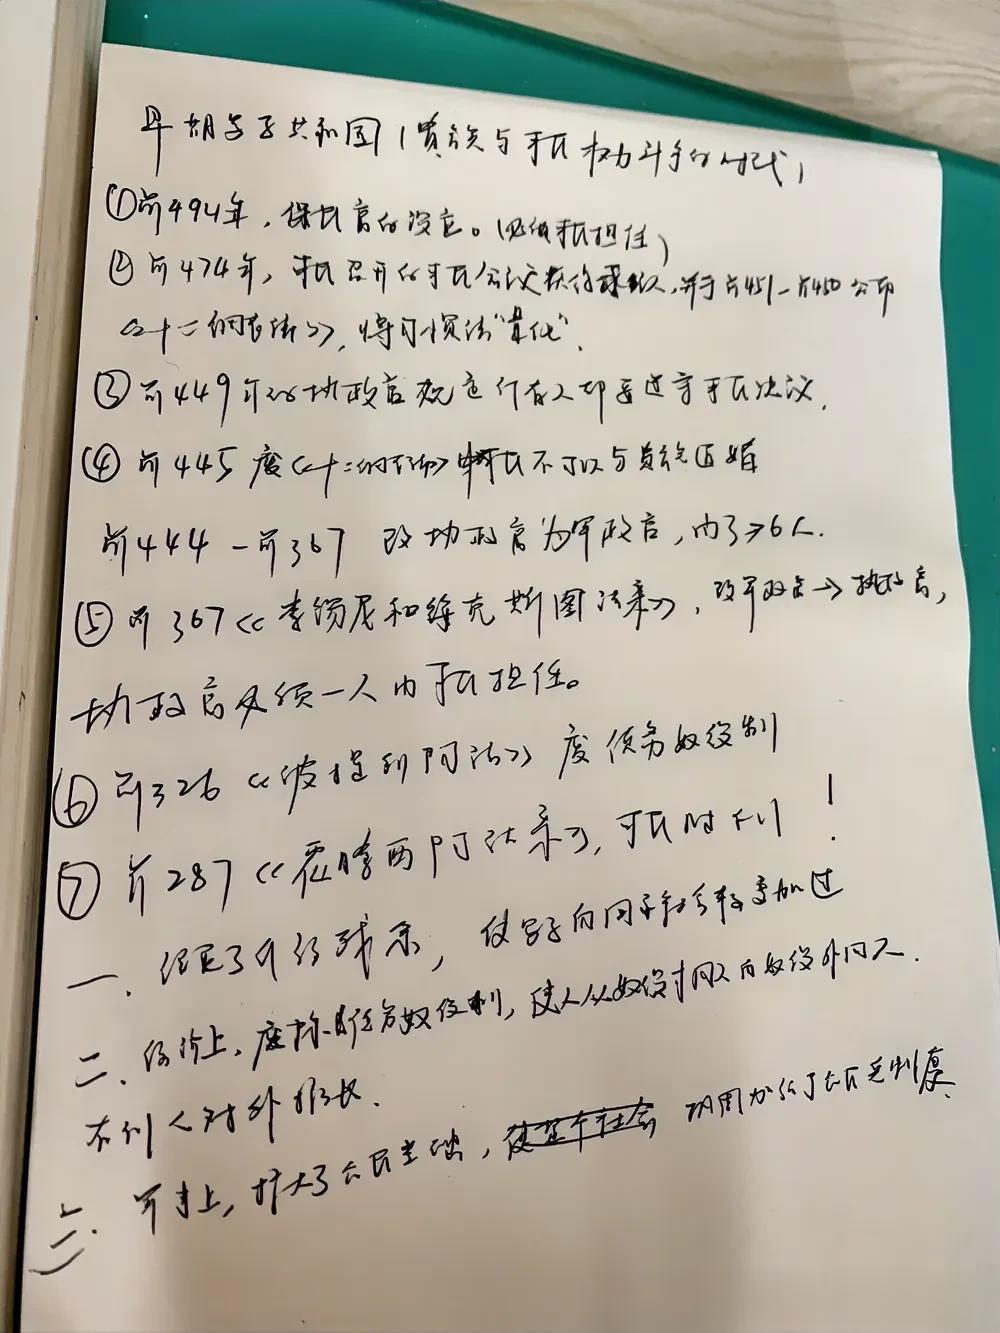 早期罗马共和国（贵族与平民权力斗争的时代）
①前494年，保民官的设立。（必须平民担任）
② 前474年，平民召开的平民会议获得承认，并于前451—前450公布
《十二铜表法》，将习惯法"量化"。
③ 前449年的执政官规定所有人都要遵守平民决议。
④ 前445 废《十二铜表》中平民不可以与贵族通婚
前444—前367 改执政官为军政官，内了≥6人.
⑤ 前367《李锡尼和绥克斯图法案》，改军政官→执政官，
执政官必须一人由平民担任。
⑥ 前326《波提利阿法》废债务奴役制
⑦ 前287《霍腾西阿法案》，平民胜利！
一、铲除了氏族残余，使罗马向国家社会转变加过
二、经济上，废除债务奴役制，使人从奴役本国人向奴役外国人.
有利于对外扩张.
三、军事上，扩大了公民基础，巩固加强了公民兵制度.